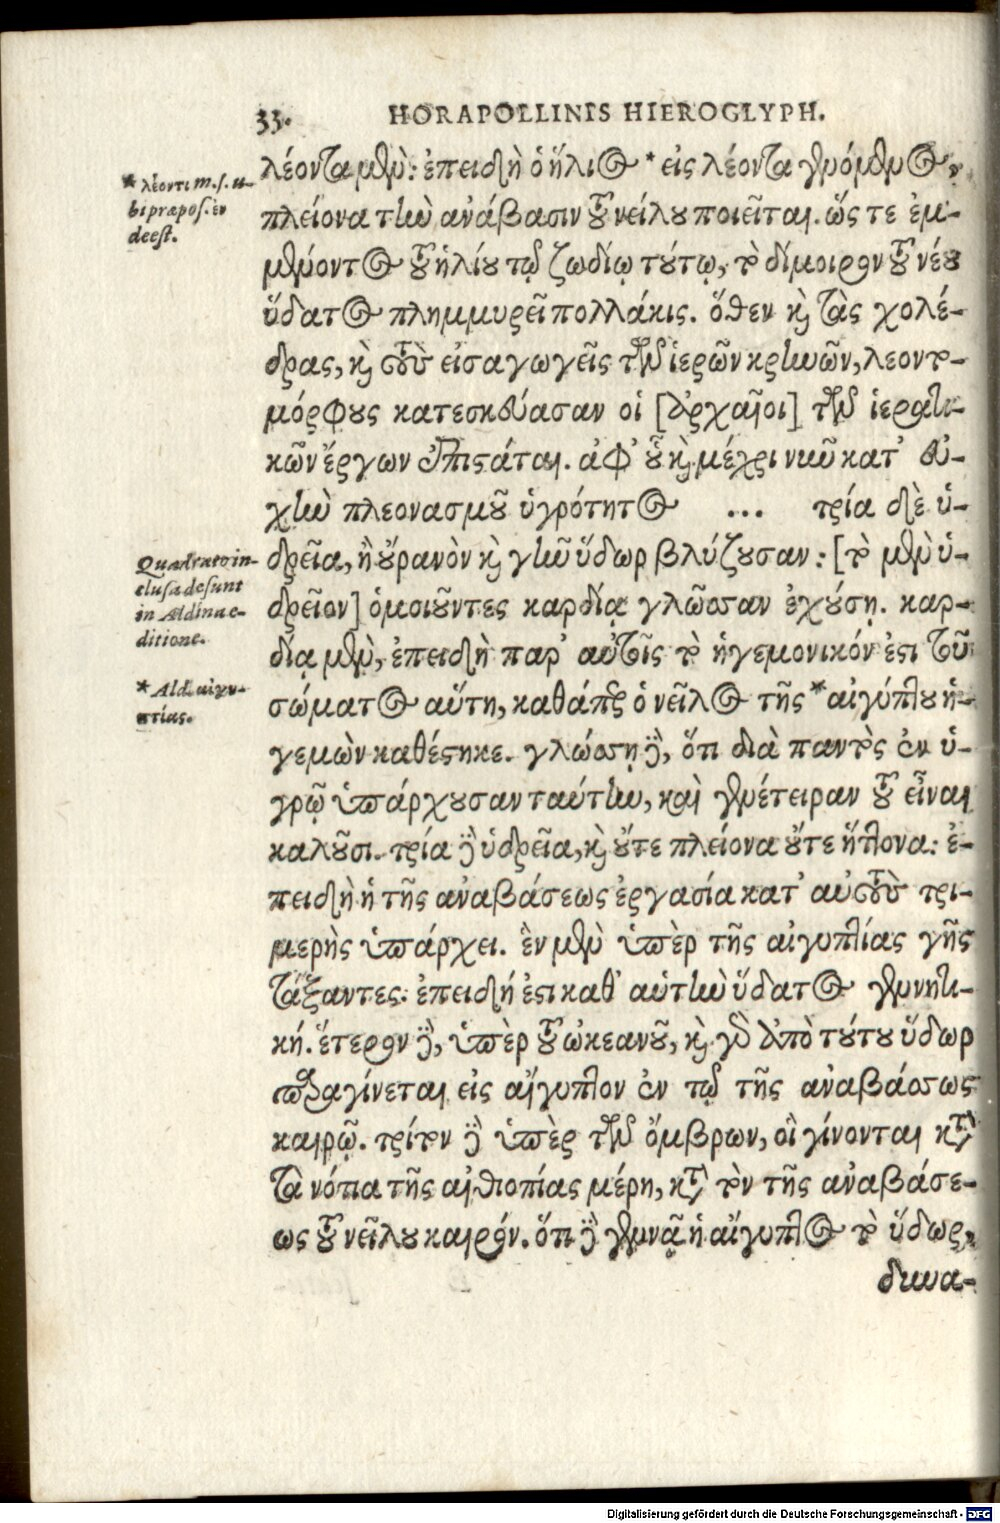 33. HORAPOLLINIS HIEROGLYPH.
λέοντα μὲν: ἐπειδὴ ὁ ἥλιος * εἰς λέοντα γενόμενος,
πλείονα τὴν ἀνάβασιν τοῦ νείλου ποιεῖται. ὥς τε ἐμ-
μένοντος τοῦ ἡλίου τῷ ζωδίῳ τούτῳ, τὸ δίμοιρον τοῦ νέου
ὕδατος πλημμυρεῖ πολλάκις. ὅθεν καὶ τὰς χολέ-
δρας, καὶ τοὺς εἰσαγωγεῖς τῶν ἱερῶν κρηνῶν, λεοντο-
μόρφους κατεσκεύασαν οἱ [ἀρχαῖοι] τῶν ἱερατι-
κῶν ἔργων ἐπιστάται. ἀφ' οὗ καὶ μέχρι νῦν κατ' εὐ-
χὴν πλεονασμοῦ ὑγρότητος ... τρία δὲ ὑ-
δρεῖα, ἢ οὐρανὸν καὶ γῆν ὕδωρ βλύζουσαν: [τὸ μὲν ὑ-
δρεῖον] ὁμοιοῦντες καρδίᾳ γλῶσσαν ἐχούσῃ. καρ-
δίᾳ μὲν, ἐπειδὴ παρ' αὐτοῖς τὸ ἡγεμονικόν ἐστι τοῦ
σώματος αὕτη, καθάπερ ὁ νεῖλος τῆς * αἰγύπτου ἡ-
γεμὼν καθέστηκε. γλώσσῃ δὲ, ὅτι διὰ παντὸς ἐν ὑ-
γρῷ ὑπάρχουσαν ταύτην, καὶ γενέτειραν τοῦ εἶναι
καλοῦσι. τρία δὲ ὑδρεῖα, καὶ οὔτε πλείονα οὔτε ἥττονα: ἐ-
πειδὴ ἡ τῆς ἀναβάσεως ἐργασία κατ' αὐτοὺς τρι-
μερὴς ὑπάρχει. ἓν μὲν ὑπὲρ τῆς αἰγυπτίας γῆς
τάξαντες: ἐπειδή ἐστι καθ' αὑτὴν ὕδατος γεννητι-
κή. ἕτερον δὲ, ὑπὲρ τοῦ ὠκεανοῦ, καὶ γὰρ ἀπὸ τούτου ὕδωρ
παραγίνεται εἰς αἴγυπτον ἐν τῷ τῆς ἀναβάσεως
καιρῷ. τρίτον δὲ ὑπὲρ τῶν ὄμβρων, οἳ γίνονται κατὰ
τὰ νότια τῆς αἰθιοπίας μέρη, κατὰ τὸν τῆς ἀναβάσε-
ως τοῦ νείλου καιρόν. ὅτι δὲ γεννᾷ ἡ αἴγυπτος τὸ ὕδωρ,
δυνα-
* λέοντι m.s. u-
bi præpos. ἐν
deest.
Quadrato in-
clusa desunt
in Aldina e-
ditione.
* Ald. αἰγυ-
πτίας.
Digitalisierung gefördert durch die Deutsche Forschungsgemeinschaft - DFG